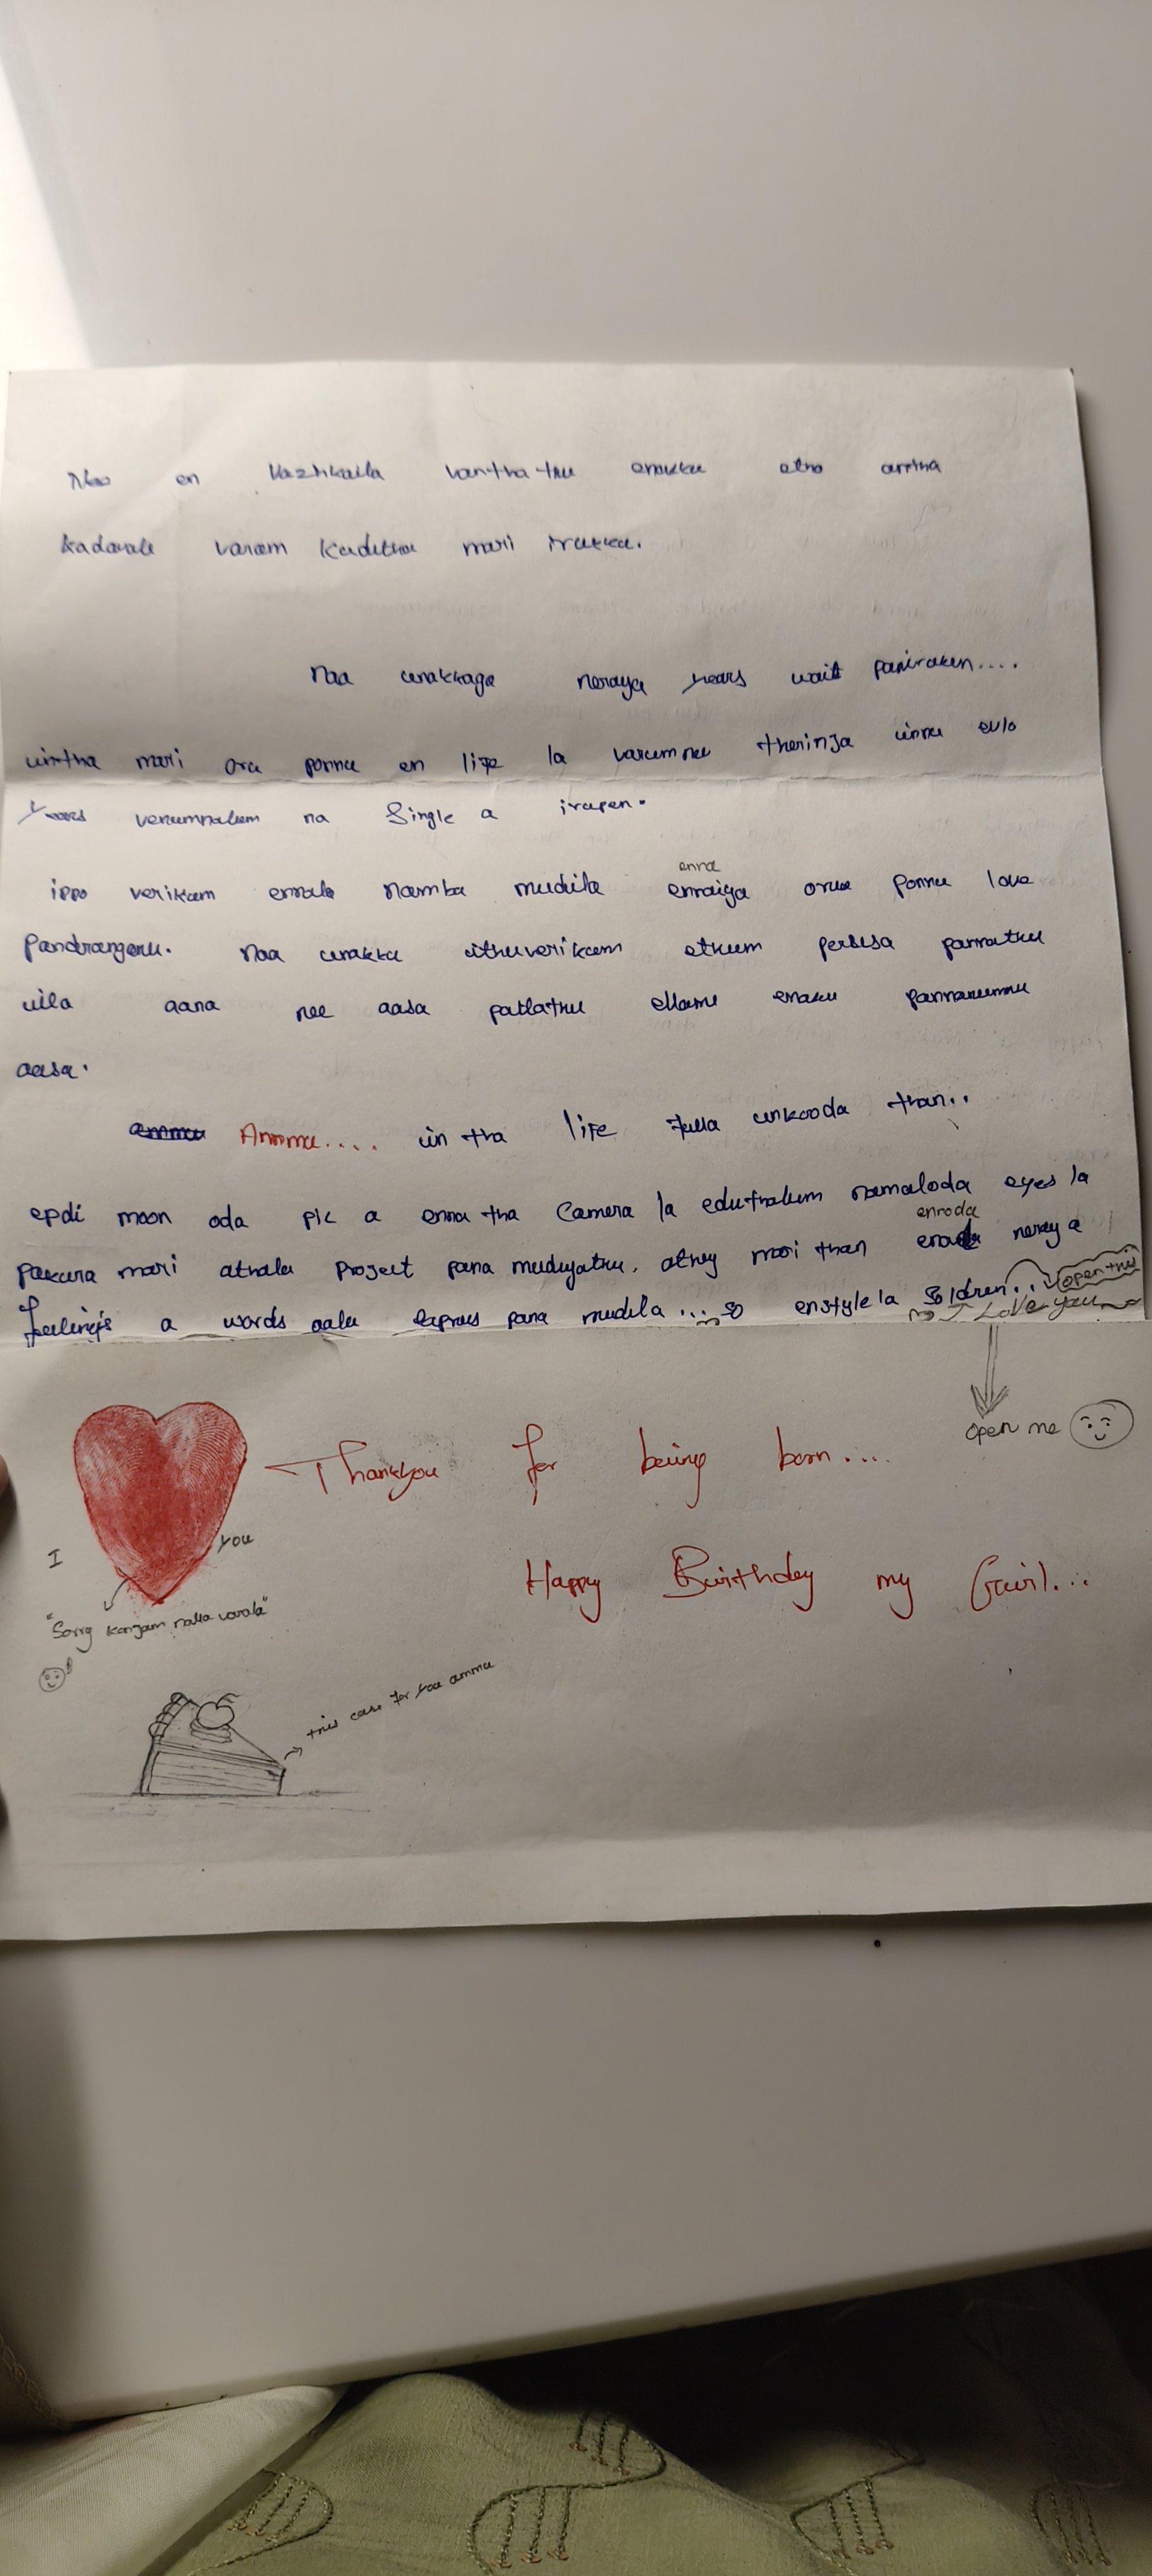 Nee en Vazhkaila vanthathu enakku etho antha
kadavule varam kudutha mari irukku.
Naa unakkaga neraya years wait paniruken....
intha mari oru ponnu en life la varumnu therinja innu evlo
Years venumnalum na Single a irupen.
ippo varikum ennala namba mudila enna
ennaiya oru ponnu love
Pandranganu. Naa unakku ithuvarikum ethum perusa pannathu
illa aana nee aasa pattathu ellame enaku pannanumnu
aasa.
Ammu.... intha life fulla unkooda than..
epdi moon oda pic a enna tha Camera la eduthalum namaloda eyes la
pakura mari athala project pana mudiyathu, athey mari than enroda neraya
feelings a words aala express pana mudila... so enstyle la soldren.. open this
I Love you
open me
Thankyou for being born....
I you
"Sorry konjam nalla varala"
Happy Birthday my Girl...
this cake for you ammu